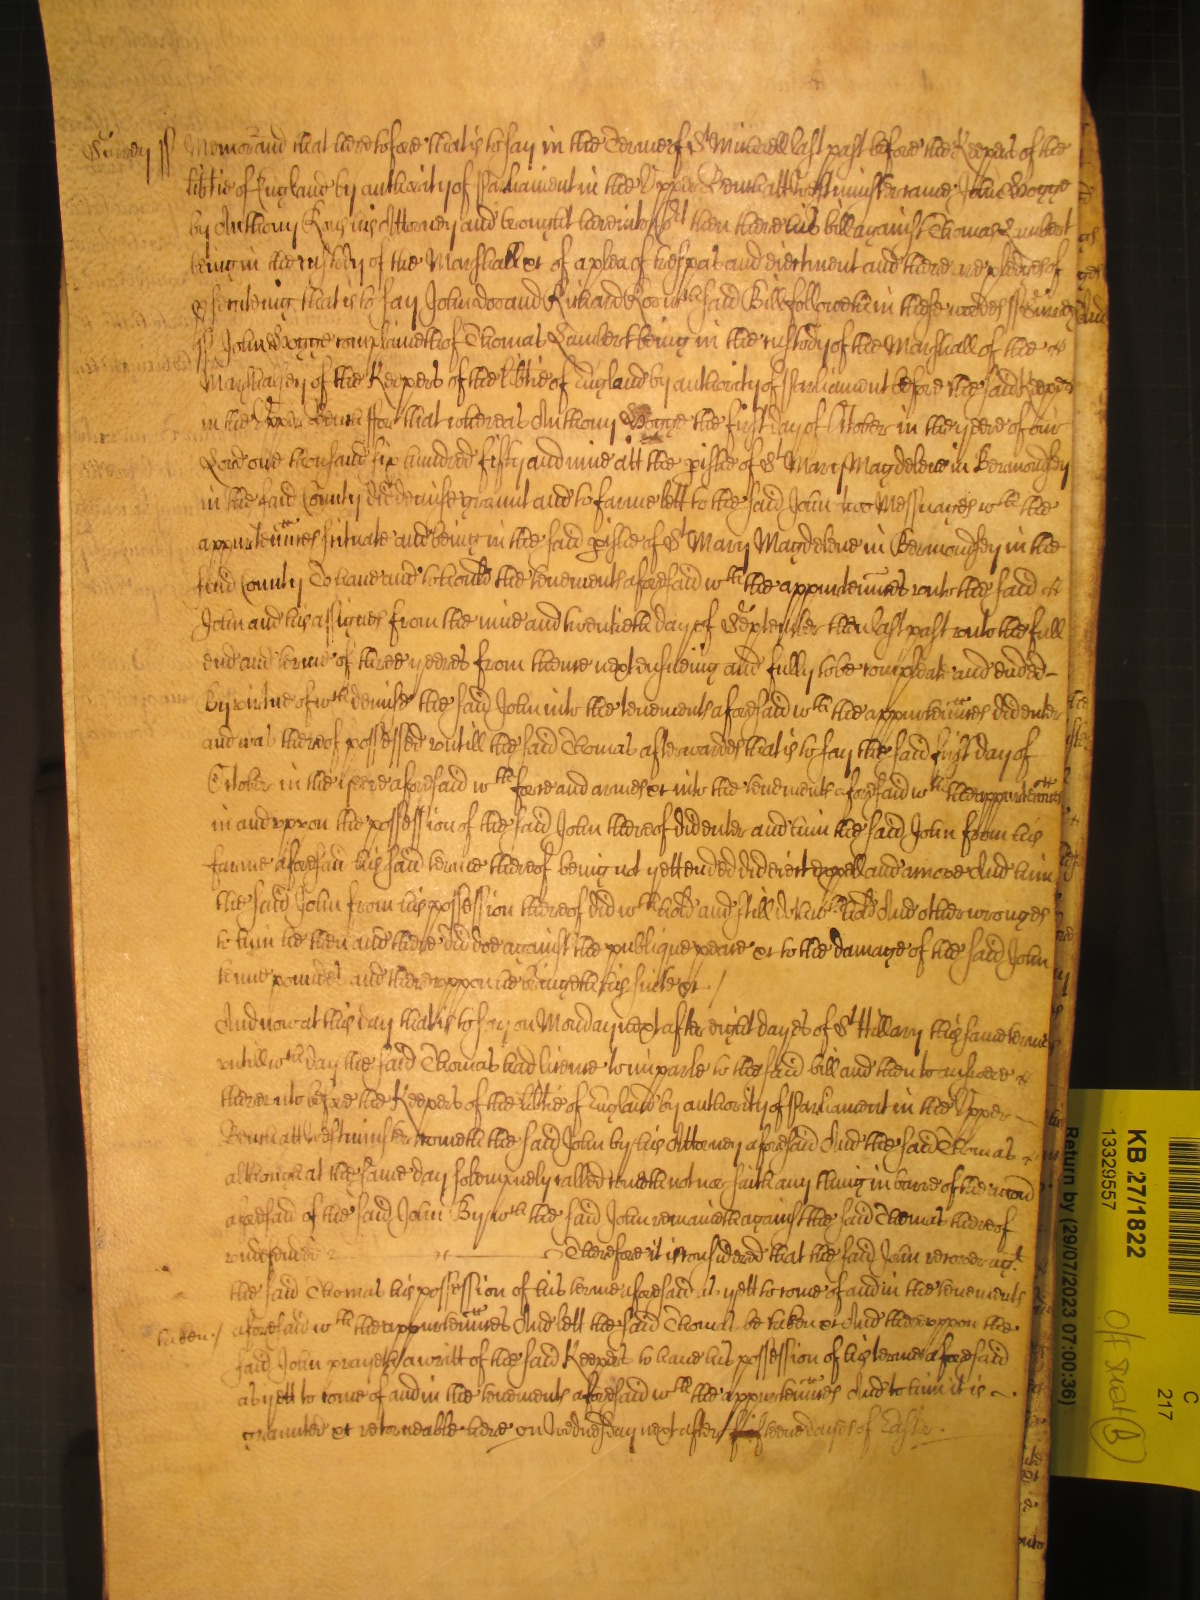 Surrey ss Memorand that heretofore that is to say in the Terme of St Michaell last past before the Keepers of the
libtie of England by authority of Parliament in the Upper Bench att Westminster came John
by Anthony his Attorney and brought here into Court then there his bill against Thomas Lambert
being in the custody of the Marshall &c of a plea of trespas and eiectment and there are pledges of
prosecuting that is to say John Doo and Richard Roo wch said Bill followeth in these wordes ss Surrey
ss John complaineth of Thomas Lambert being in the custody of the Marshall of the
Marshalsey of the Keepers of the libtie of England by authority of Parliament before the said Keepers
in the Upper Bench ffor that whereas Anthony the first day of October in the yeere of our
Lord one thousand six hundred fifty and nine att the pishe of St Mary Magdelene in Bermondsey
in the said County did demise graunt and to farme lett to the said John two Messuages wth the
appurtennces scituate and being in the said pishe of St Mary Magdelene in Bermondsey in the
said County To have and to hould the tenements aforesaid wth the appurtennces unto the said
John and his assignes from the nine and twentieth day of September then last past unto the full
end and terme of three yeeres from thence next ensueing and fully to be compleate and ended
By virtue of wch demise the said John into the tenements aforesaid wth the appurtennces did enter
and was thereof possessed untill the said Thomas afterwardes that is to say the said first day of
October in the yeere aforesaid wth force and armes &c into the tenements aforesaid wth the appurtennces
in and uppon the possession of the said John thereof did enter and him the said John from his
farme aforesaid his said terme thereof being not yett ended did eiect expell and amove And him
the said John from his possession thereof did wthhold and still doth wthhold And other wronges
to him he then and there did doe against the publique peace &c to the damage of the said John
tenne poundes and thereuppon he bringeth his suite &c /
And now at this day that is to say on Monday next after eight dayes of St Hillary this same terme
untill wch day the said Thomas had licence to imparle to the said bill and then to answere
thereunto before the Keepers of the libtie of England by authority of Parliament in the Upper
Bench att Westminster cometh the said John by his Attorney aforesaid And the said Thomas
although at the same day solempnely called cometh not nor saith any thing in barre of the accon
aforesaid of the said John By wch the said John remaineth against the said Thomas thereof
undefended Therefore it is considered that the said John recover agt
the said Thomas his possession of his terme aforesaid as yett to come of and in the tenements
taken / aforesaid wth the appurtennces And lett the said Thomas be taken &c And thereuppon the
said John prayeth a writt of the said Keepers to have his possession of his terme aforesaid
as yett to come of and in the tenements aforesaid wth the appurtennces And to him it is
graunted &c retorneable here on Wednesday next after dayes of Easter.
KB 27/1822
13329557
Return by (29/07/2023 07:00:36)
C
217